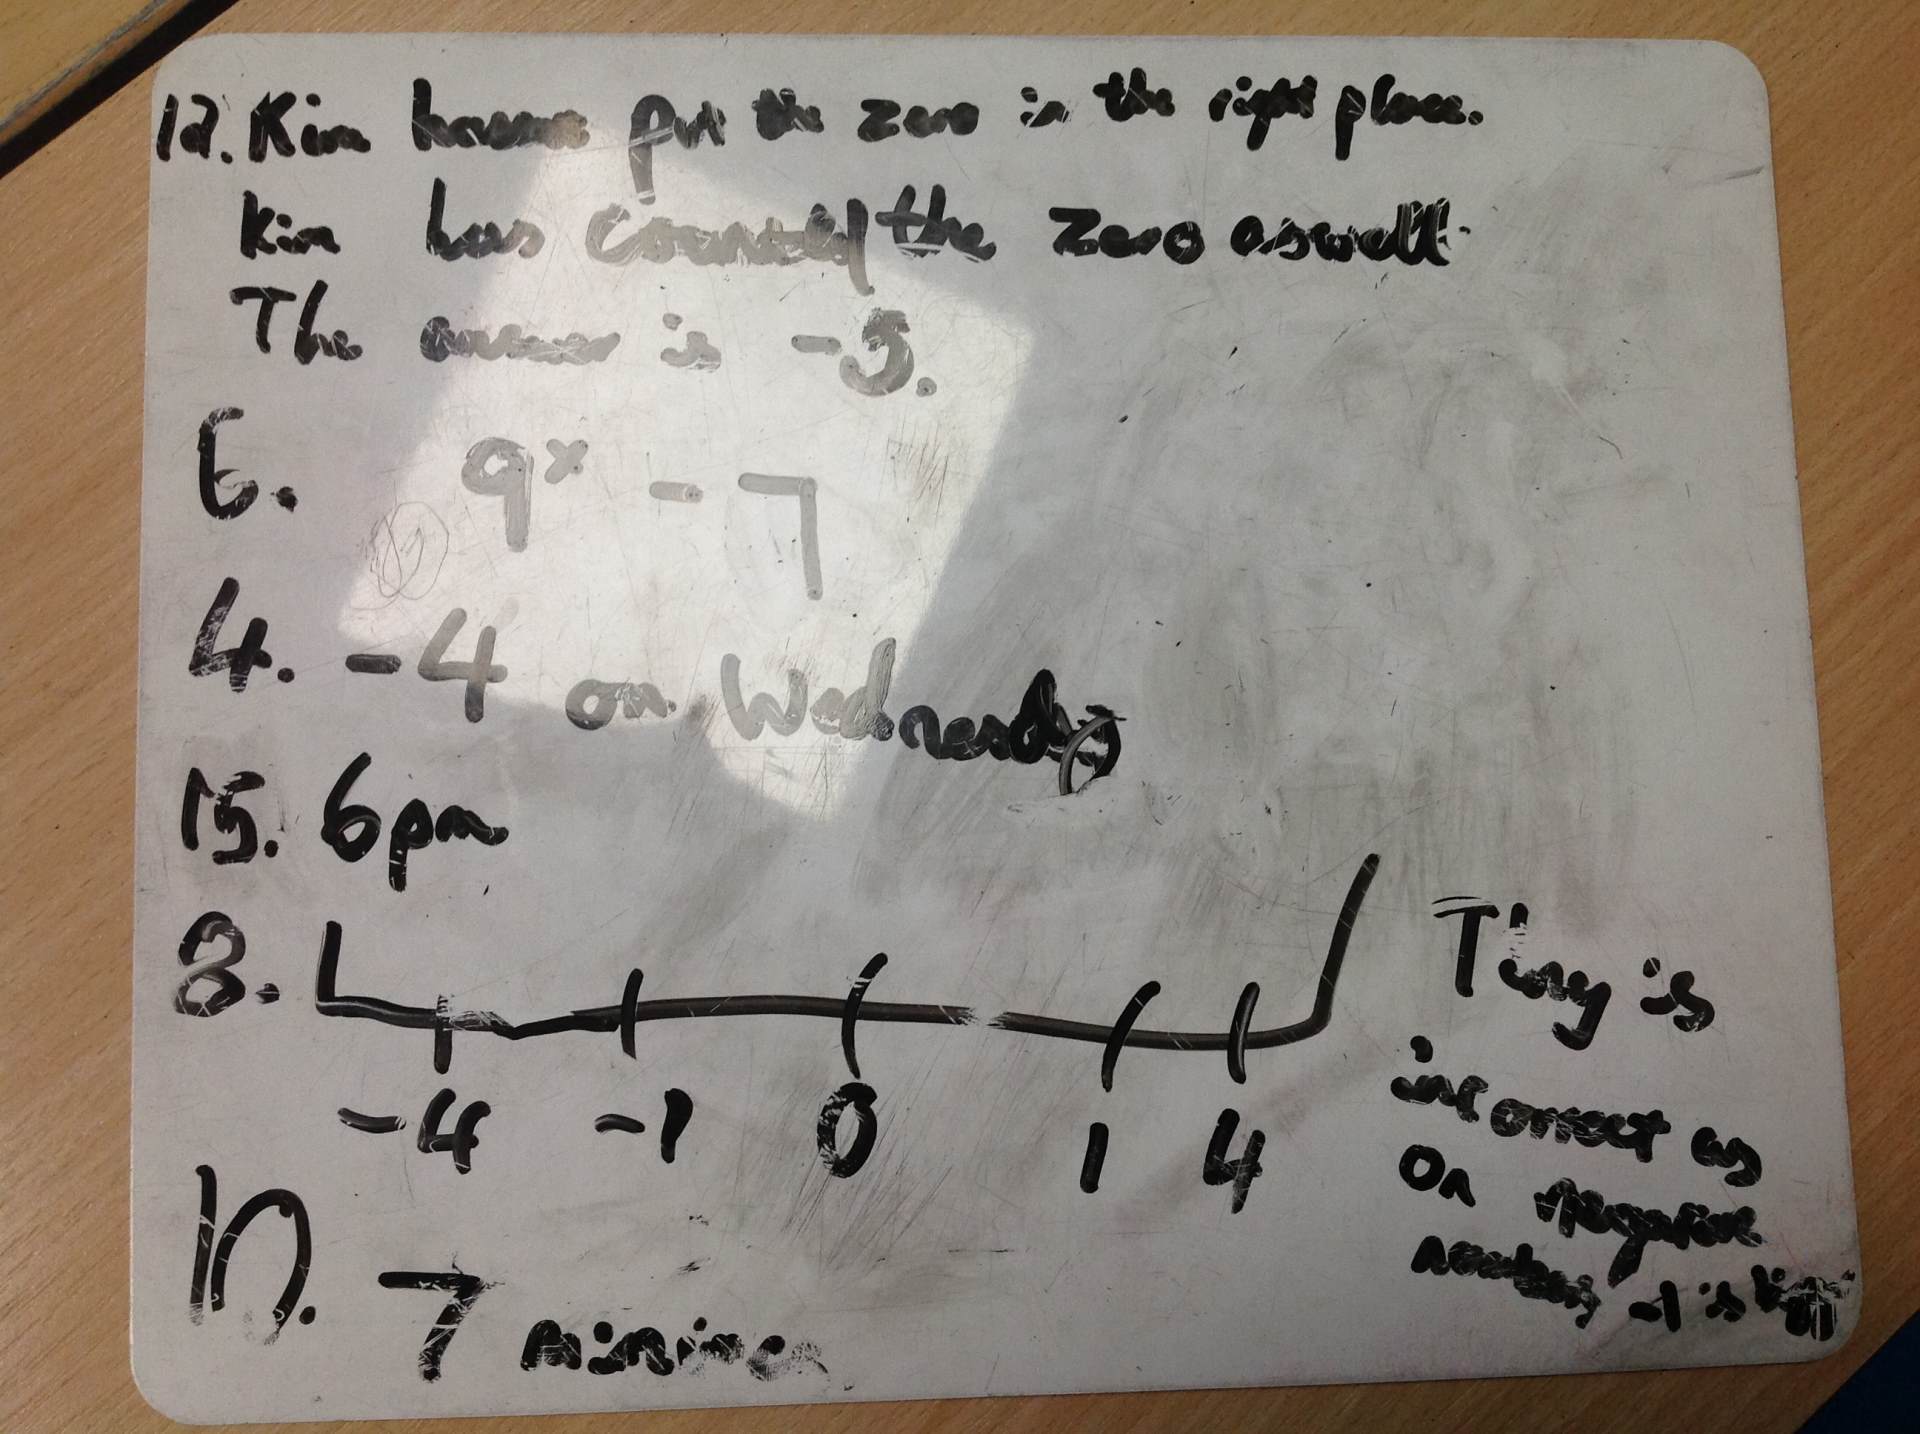 12. Kim put the zero in the right place.
Kim has counted the zero aswell.
The answer is -5.
6. 9x - 7
4. -4 on Wednesday
15. 6pm
8.
-4 -1 0 1 4
Tiny is
incorrect as
on negative
numbers -1 is
7